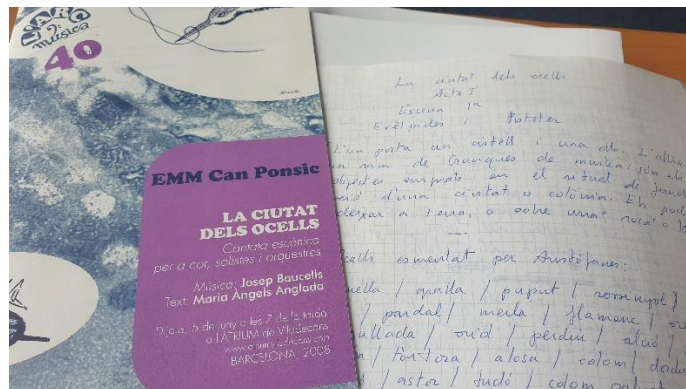 L'ARC
música
40
EMM Can Ponsic
LA CIUTAT
DELS OCELLS
Cantata escènica
per a cor, solistes i orquestres
Música: Josep Baucells
Text: Maria Àngels Anglada
Dijous, 5 de juny a les 7 de la tarda
a l'ATRIUM de Viladecans
BARCELONA, 2008
La ciutat dels ocells
Acte I
Escena 1a
Evèlpides i Pisteter
L'un porta un cistell i una olla. L'altre
un ram de branques de murtra. Són els
objectes emprats en el ritual de
d'una ciutat o colònia. Els
deixar a terra, o sobre una roca o
esmentat per Aristòfanes:
/ guatlla / puput / rossinyol /
/ pardal / merla / flamenc /
/ perdiu /
/ tórtora / alosa / colom /
/ astor / / colom